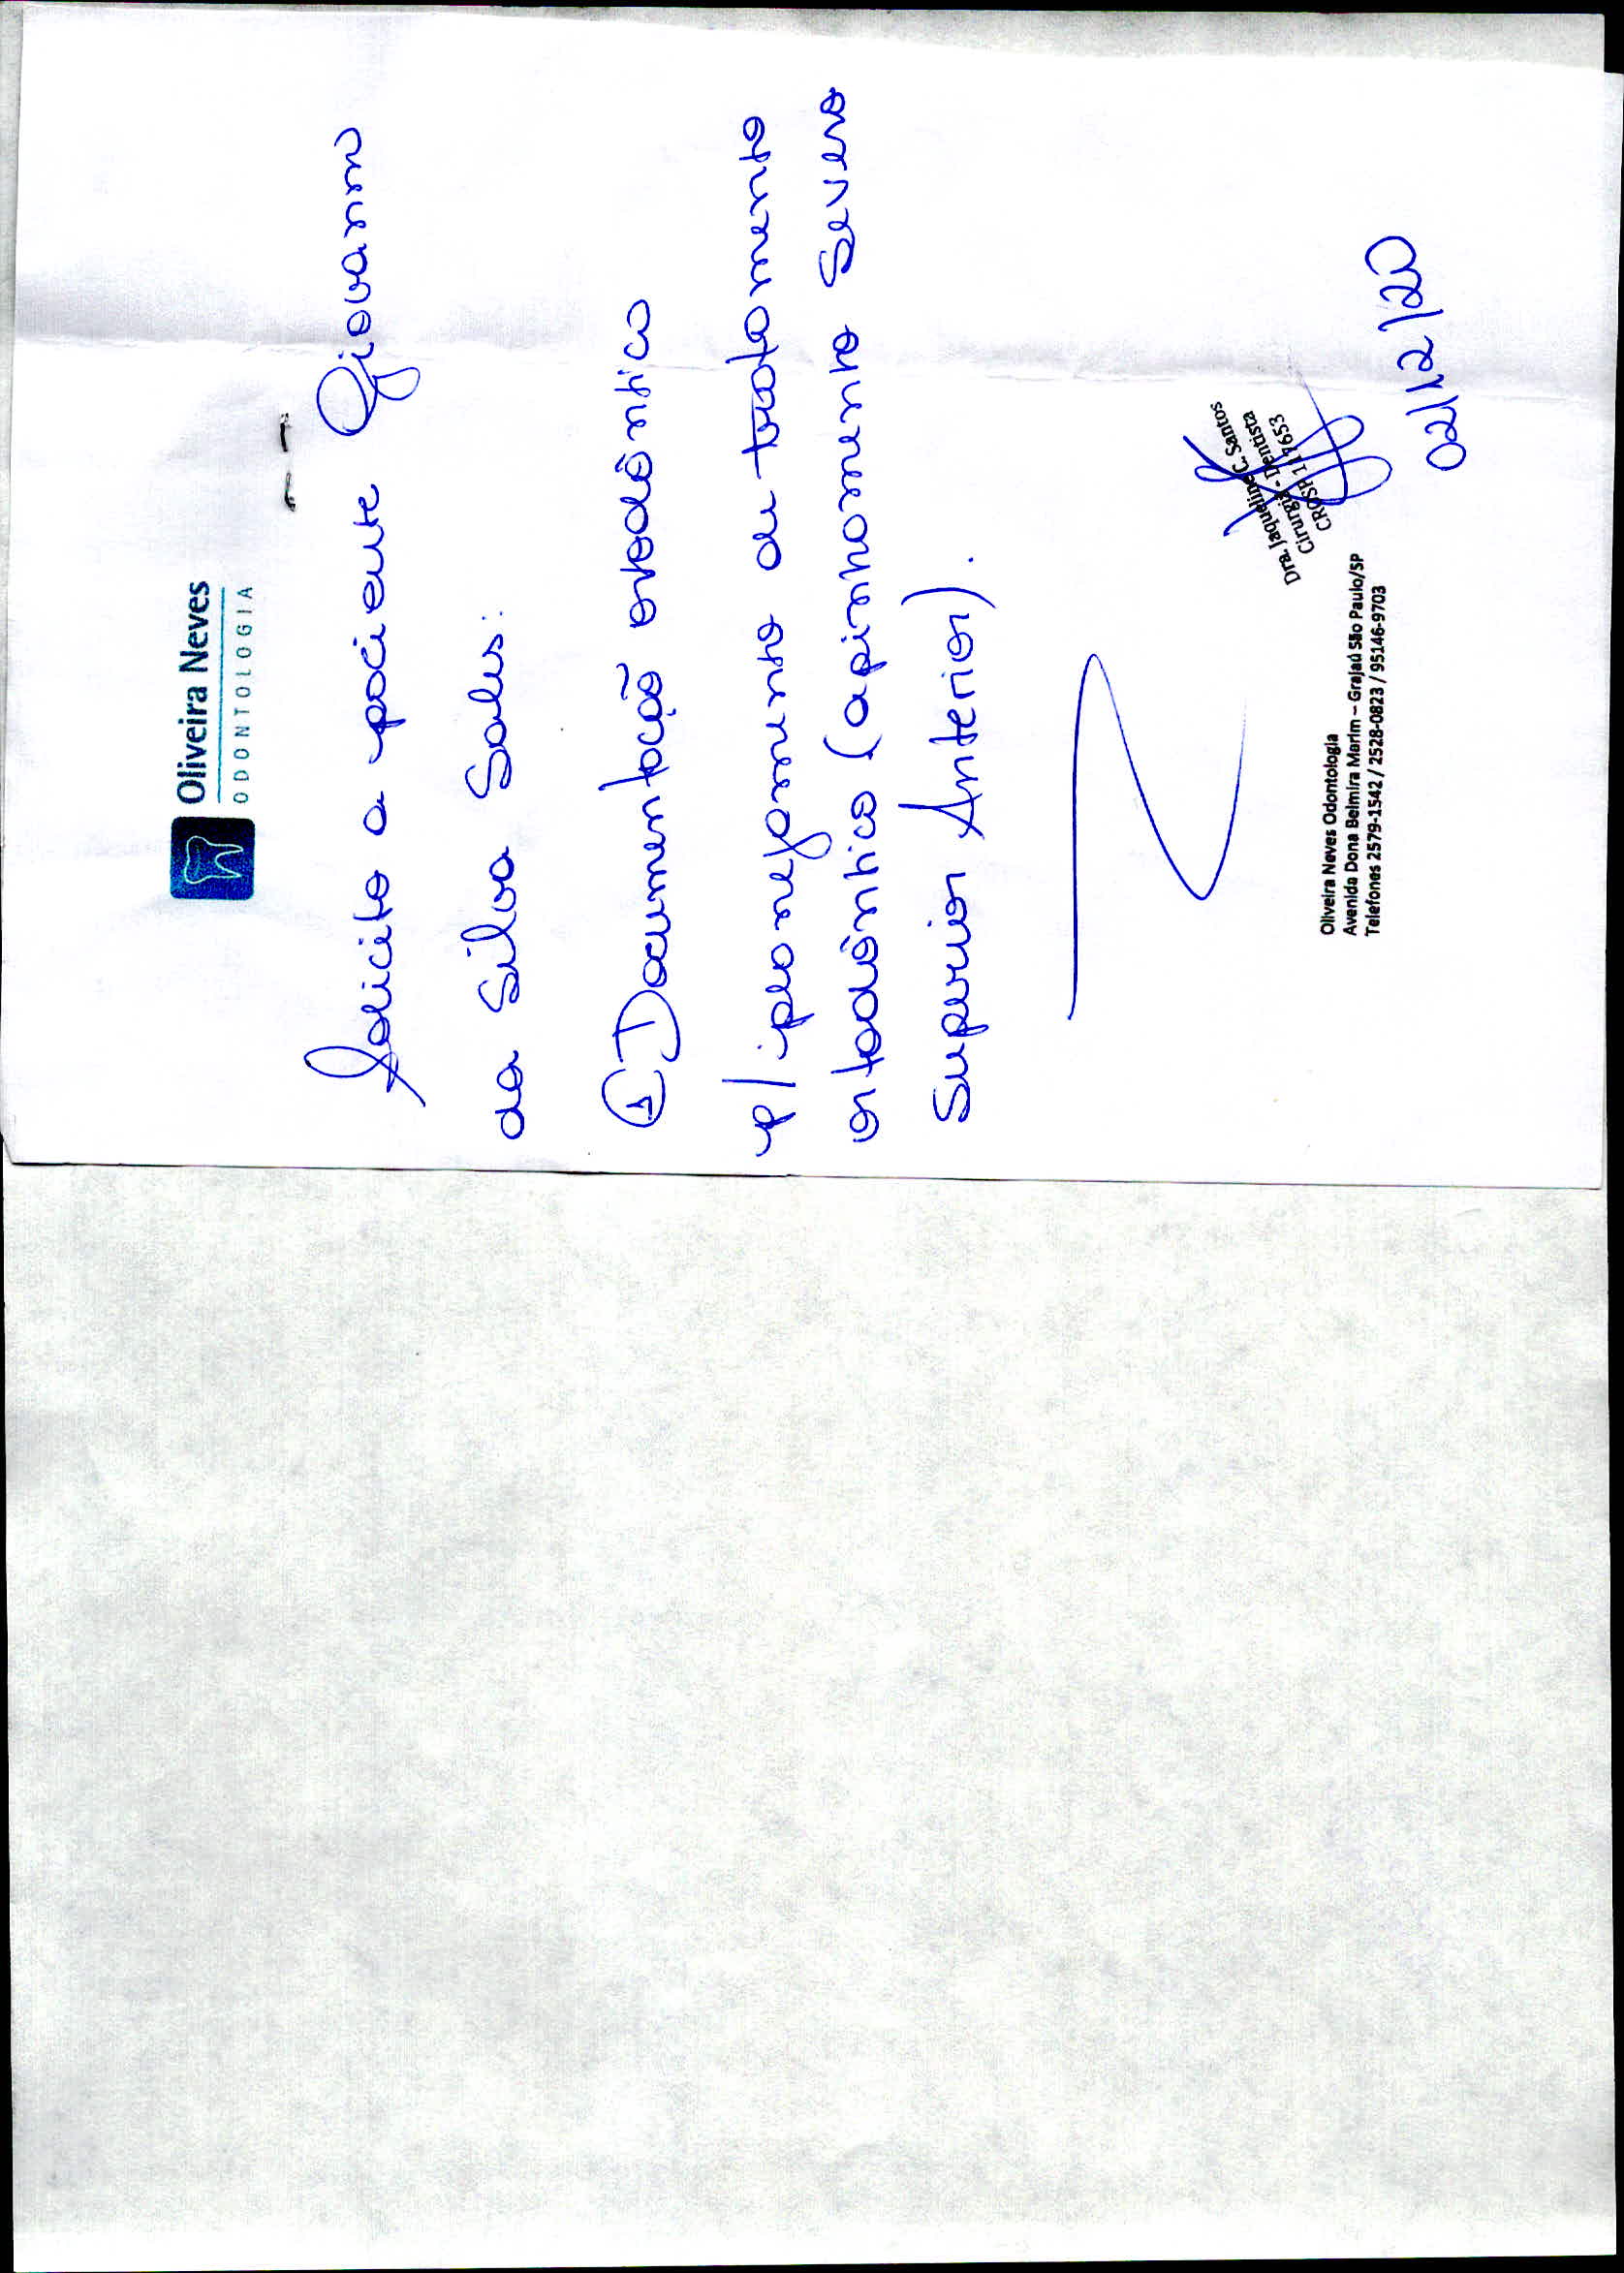 Oliveira Neves
ODONTOLOGIA
Solicito a paciente Giovanna
da Silva Sales:
① Documentação ortodôntica
p/ planejamento de tratamento
ortodôntico (apinhamento severo
Superior Anterior).
Dra. Jaqueline C. Santos
Cirurgiã - Dentista
CROSP 117653
02/12/20
Oliveira Neves Odontologia
Avenida Dona Belmira Marim – Grajaú São Paulo/SP
Telefones 2579-1542 / 2528-0823 / 95146-9703